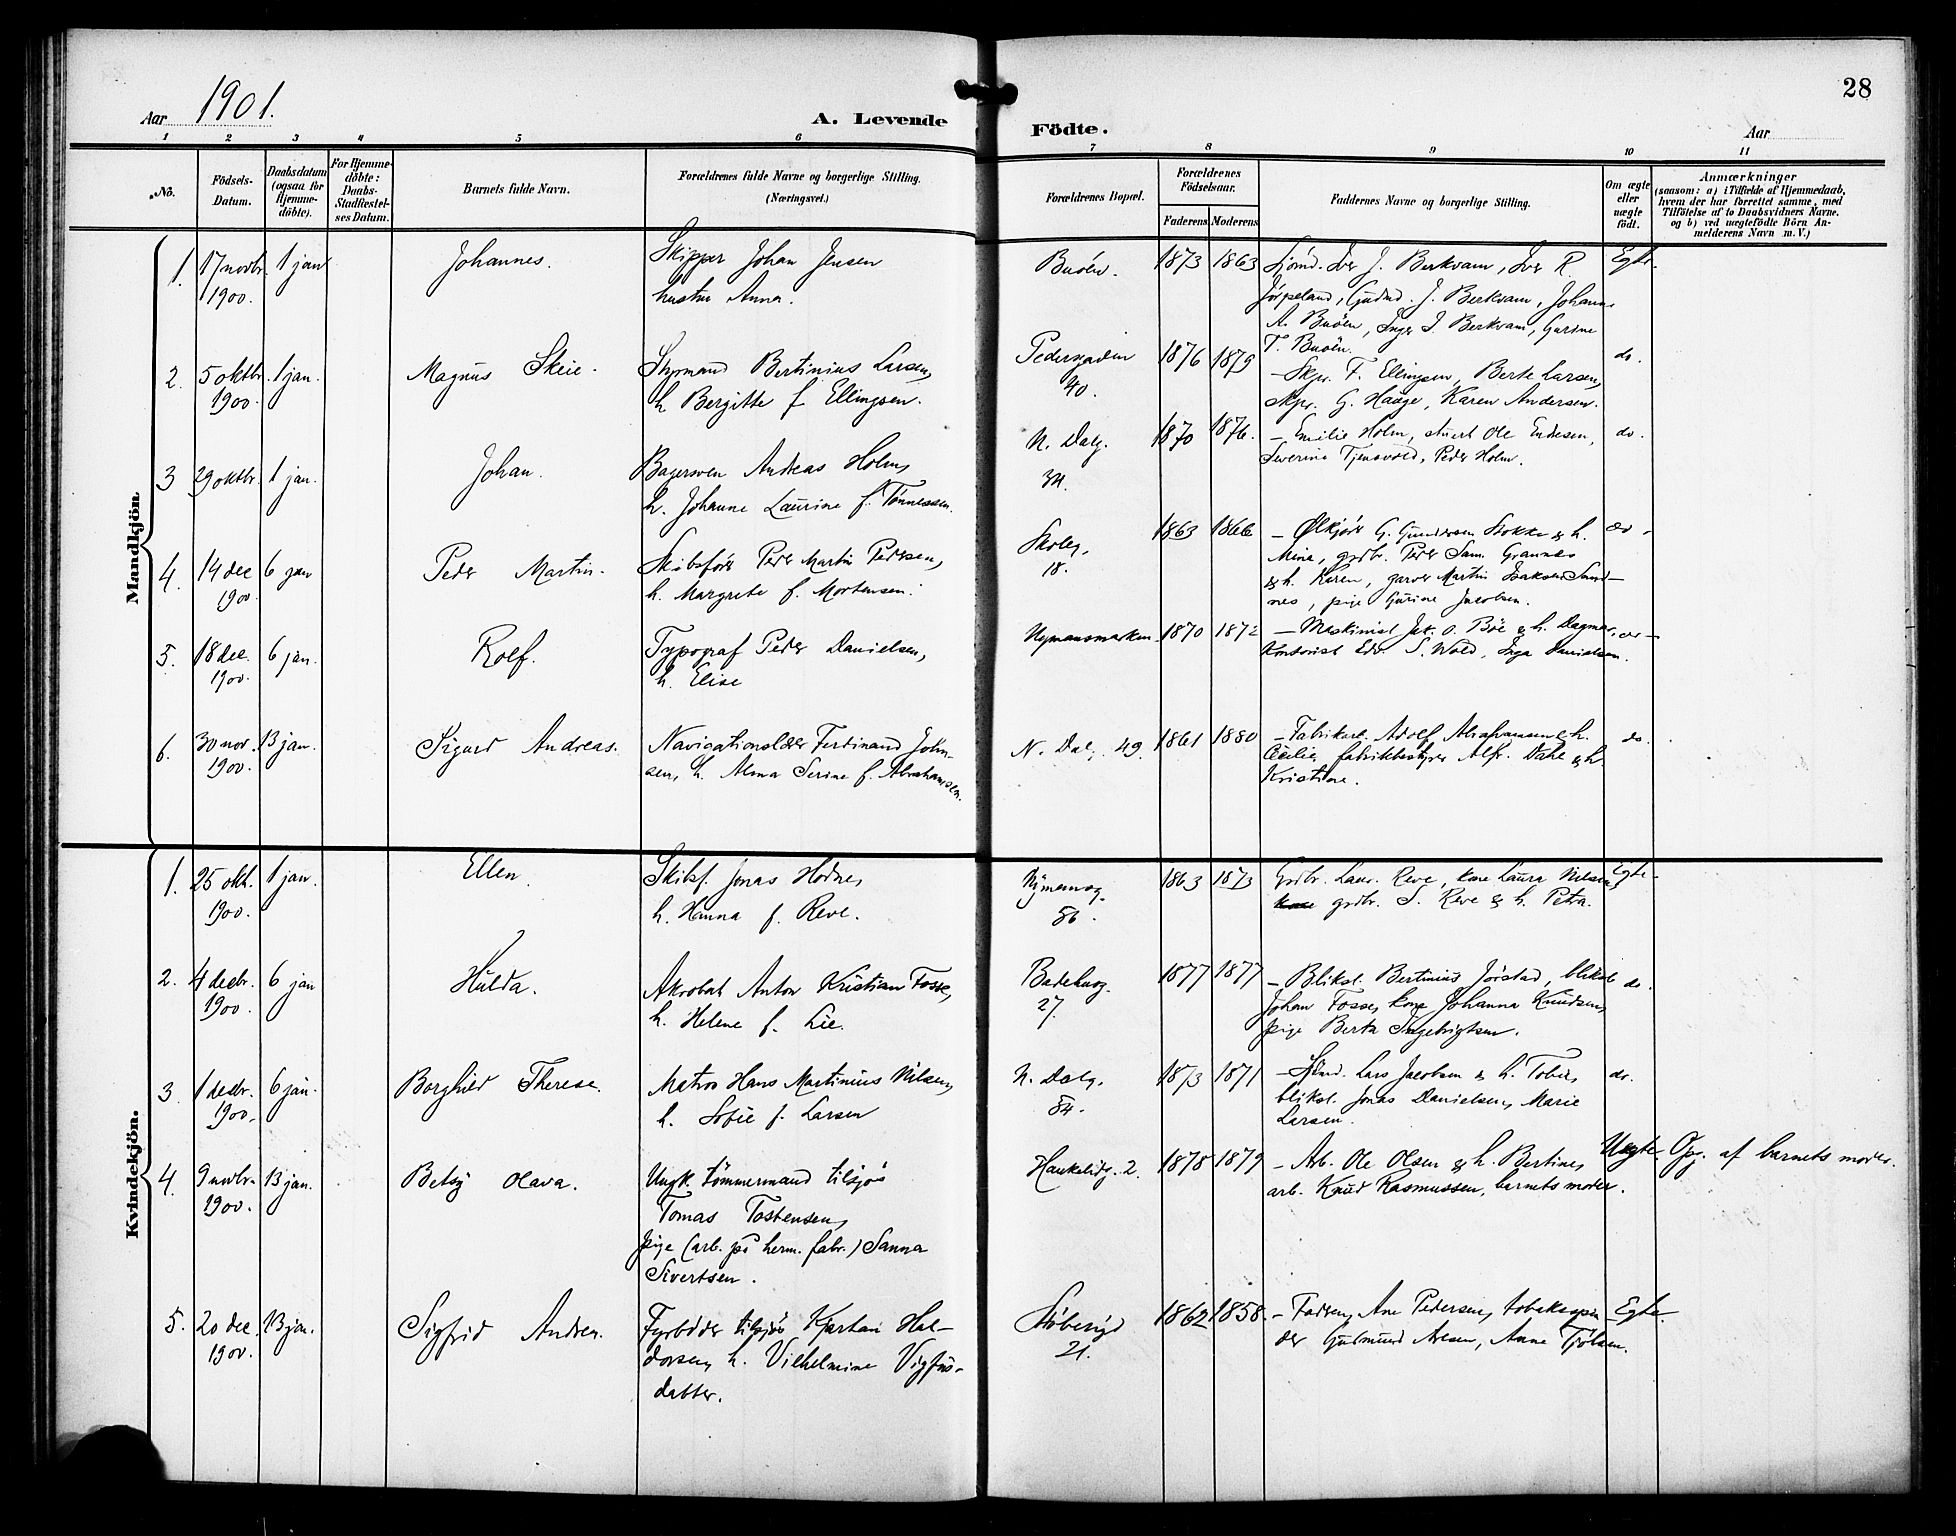 28
Aar 1901.
A. Levende Födte.
Aar
1 2 3 4 5 6 7 8 9 10 11
No.
Födsels-Datum.
Daabsdatum (ogsaa for Hjemme-döbte).
For Hjemme-döbte: Daabs-Stadfæstel-ses Datum.
Barnets fulde Navn.
Forældrenes fulde Navne og borgerlige Stilling.
(Næringsvei.)
Forældrenes Bopæl.
Forældrenes Födselsaar.
Faderens Moderens
Faddernes Navne og borgerlige Stilling.
Om ægte eller uægte födt.
Anmærkninger
(saasom: a) i Tilfælde af Hjemmedaab,
hvem der har forrettet samme, med
Tilföielse af to Daabsvidners Navne.
og b) ved uægtefödte Börn An-
melderens Navn m. V.)
Mandkjön.
1. 17 novbr. 1900. 1 jan Johannes. Skipper Johan Jensen
hustru Anna.
Buöen. 1873 1863 Sjömd. Iver J. Berkvam, Iver R.
Jörpeland, Gudmd. J. Berkvam, Johanne
A. Buöen, Inger I. Berkvam, Gurine
T. Buöen. Egte.
2. 5 oktbr. 1900. 1 jan. Magnus Skeie. Styrmand Bertinius Larsen,
h Bergitte f Ellingsen.
Pedersgaden 40. 1876 1879 - Skpr. F. Ellingsen, Berte Larsen,
skpr. G. Hauge, Karen Andersen. do.
3 29 oktbr. 1 jan. Johan. Bagersven Andreas Holm,
h. Johanne Laurine f. Tönnessen.
N. Dalg. 34. 1870 1876. - Emilie Holm, stuert Ole Endresen,
Severine Tjensvold, Peder Holm. do.
4. 14 dec 1900 6 jan Peder Martin. Skibsförer Peder Martin Pedersen,
h. Margrete f. Mortensen.
Skoleg. 18. 1863 1866 - Ølkjörer G. Gundersen Stokke & h.
Mine, grdbr. Peder Sam. Grannes
& h. Karen, garver Martin Isaksen Sand-
nes, pige Gurine Jacobsen. do.
5. 18 dec. 1900. 6 jan. Rolf. Typograf Peder Danielsen,
h. Elise
Nymansmarken 1870 1872 - Maskinist Jak. O. Böe & h. Dagmar,
Kontorist Edv. S. Wold, Inga Danielsen.
6. 30 nov. 1900. 13 jan. Sigurd Andreas. Navigationslærer Ferdinand John-
sen, h. Alma Serine f. Abrahamsen.
N. Dalg. 49. 1861 1880 - Fabrikarb. Adolf Abrahamsen & h.
Cecilie, fabrikbestyrer Alfr. Dahl & h.
Kristine. do.
Kvindekjön.
1. 25 okt. 1900. 1 jan. Ellen. Skibsf. Jonas Hodne,
h. Hanna f. Reve.
86. 1863 1873 Grdbr. Laur. Reve, kone Laura Nilsen,
grdbr. S. Reve & h. Petra. Egte.
2. 4 decbr. 1900. 6 jan Hulda. Akrobat Anton Kristian Fosse,
h. Helene f. Lie.
27. 1877 1877 - Bliksl. Bertinius Jörstad, bliksl
Johan Fosse, kone Johanna Knudsen,
pige Berta Ingebrigtsen. do.
3. 1 decbr. 1900. 6 jan. Borghild Therese. Matros Hans Martinius Nilsen,
h. Sofie f. Larsen
N. Dalg. 84. 1873 1871 - Sjömd. Lars Jacobsen & h. Tobie,
bliksl. Jonas Danielsen, Marie
Larsen. do.
4. 9 novbr. 1900. 13 jan. Betsy Olava. Ungk. tömmermand tilsjös
Tomas Tostensen,
pige (arb. på herm. fabr.) Sanna
Sivertsen.
Haukeligt. 2. 1878 1879 - Arb. Ole Olsen & h. Bertine,
arb. Knud Rasmussen, barnets moder. Uegte. Opg. af barnets moder.
5. 20 dec. 1900. 13 jan. Sigfrid Andrea. Fyrböder tilsjös Kjartan Hal-
dorsen, h. Vilhelmine Vigfus-
datter.
21. 1862 1858. - Faderen, Ane Pedersen, tobakspin-
der Gudmund Aresen, Anne Tjölsen. Egte.